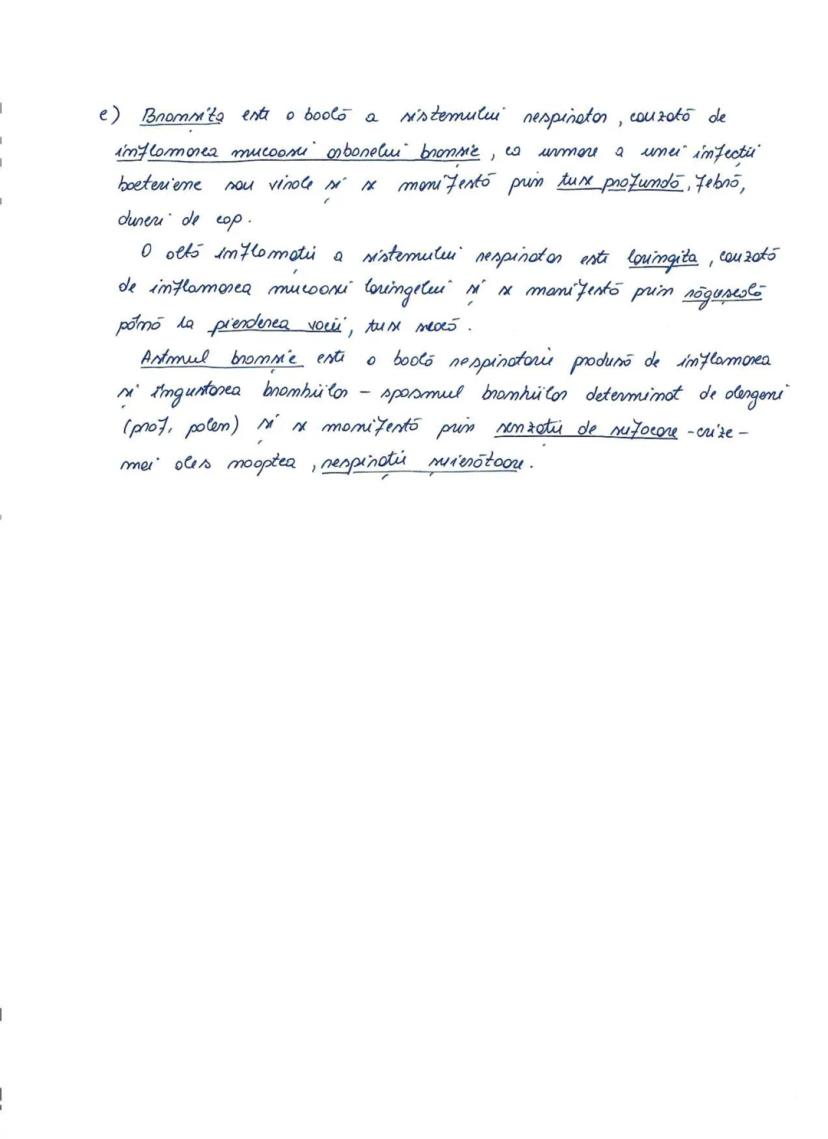 e) Bronșita este o boală a sistemului respirator, cauzată de
inflamarea mucoasei arborelui bronșic, ca urmare a unei infecții
bacteriene sau virale și se manifestă prin tuse profundă, febră,
dureri de cap.
O altă inflamație a sistemului respirator este laringita, cauzată
de inflamarea mucoasei laringelui și se manifestă prin răgușeală
până la pierderea vocii, tuse seacă.
Astmul bronșic este o boală respiratorie produsă de inflamarea
și îngustarea bronhiilor – spasmul bronhiilor determinat de alergeni
(praf, polen) și se manifestă prin senzații de sufocare – crize –
mai ales noaptea, respirații șuierătoare.